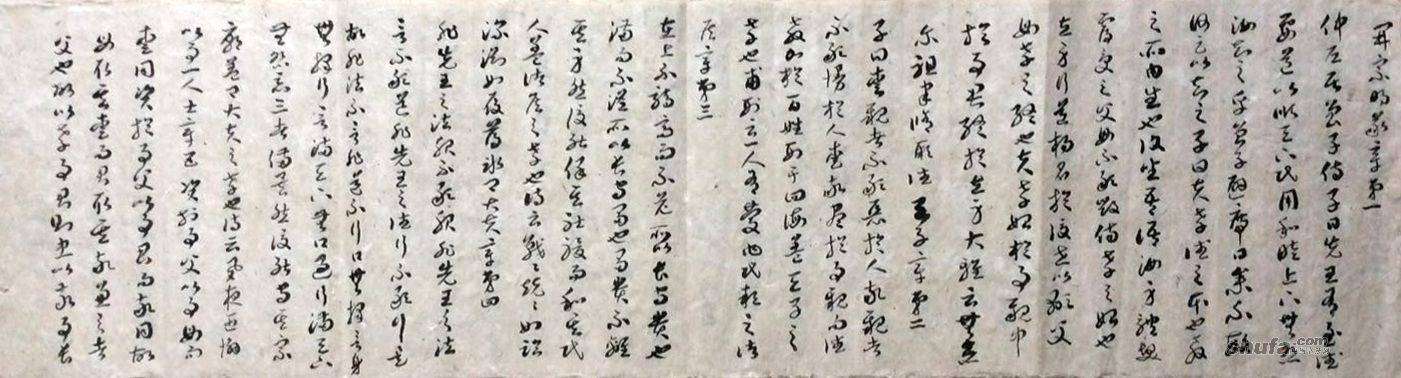 開宗明義章第一
仲尼居曾子侍子曰先王有至德
要道以順天下民用和睦上下無怨
汝知之乎曾子避席曰參不敏
何足以知之子曰夫孝德之本也教
之所由生也復坐吾語汝身體髮
膚受之父母不敢毀傷孝之始也
立身行道揚名於後世以顯父
母孝之終也夫孝始於事親中
於事君終於立身大雅云無念
尔祖聿脩厥德天子章第二
子曰愛親者不敢惡於人敬親者
不敢慢於人愛敬盡於事親而德
教加於百姓刑于四海蓋天子之
孝也甫刑云一人有慶兆民賴之諸
侯章第三
在上不驕高而不危所以長守貴也
滿而不溢所以長守富也富貴不離
其身然後能保其社稷而和其民
人蓋諸侯之孝也詩云戰々兢々如臨
深淵如履薄冰卿大夫章第四
非先王之法服不敢服非先王之法
言不敢道非先王之德行不敢行是
故非法不言非道不行口無擇言身
無擇行言滿天下無口過行滿天下
無怨惡三者備矣然後能守其宗
廟蓋卿大夫之孝也詩云夙夜匪懈
以事一人士章第五資於事父以事母而
愛同資於事父以事君而敬同故
母取其愛而君取其敬兼之者
父也故以孝事君則忠以敬事長
shufa.com